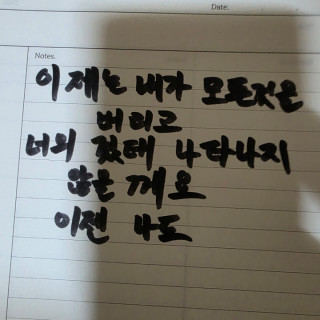 Date:
Notes.
이제는 내가 모든것은
버리고
너의 겠태 나타나지
않을 께요
이젠 나도